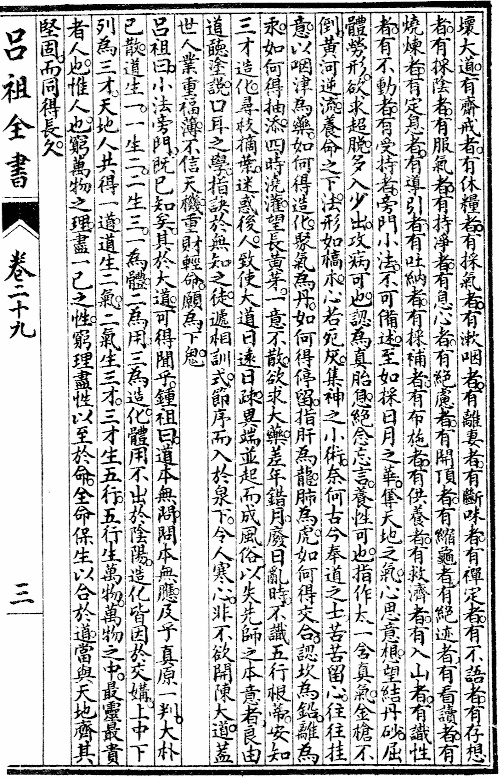 壞大道有齋戒者有休糧者有採氣者有漱咽者有離妻者有斷味者有禪定者有不語者有存想
者有採陰者有服氣者有持淨者有息心者有絕慮者有開頂者有縮龜者有絕迹者有看讀者有
燒煉者有定息者有導引者有吐納者有採補者有布施者有供養者有救濟者有入山者有識性
者有不動者有受持者旁門小法不可備述至如採日月之華奪天地之氣心思意想望結丹砂屈
體勞形欲求超脫多入少出攻病可也認為真胎息絕念忘言養性可也指作太一含真氣金槍不
倒黃河逆流養命之下法形如槁木心若死灰集神之小術奈何古今奉道之士苦苦留心往往挂
意以咽津為藥如何得造化聚氣為丹如何得停留指肝為龍肺為虎如何得交合認坎為鉛離為
汞如何得抽添四時澆灌望長黃芽一意不散欲求大藥差年錯月廢日亂時不識五行根蒂安知
三才造化尋枝摘葉迷惑後人致使大道日遠日疎異端並起而成風俗以失先師之本意者良由
道聽塗說口耳之學指訣於無知之徒遞相訓式節序而入於泉下令人寒心非不欲開陳大道蓋
世人業重福薄不信天機重財輕命願為下鬼
呂祖曰小法旁門既已知矣其於大道可得聞乎鍾祖曰道本無問問本無應及乎真原一判大朴
已散道生一一生二二生三一為體二為用三為造化體用不出於陰陽造化皆因於交媾上中下
列為三才天地人共得一道道生二氣二氣生三才三才生五行五行生萬物萬物之中最靈最貴
者人也惟人也窮萬物之理盡一己之性窮理盡性以至於命全命保生以合於道當與天地齊其
堅固而同得長久
呂祖全書
卷二十九
三